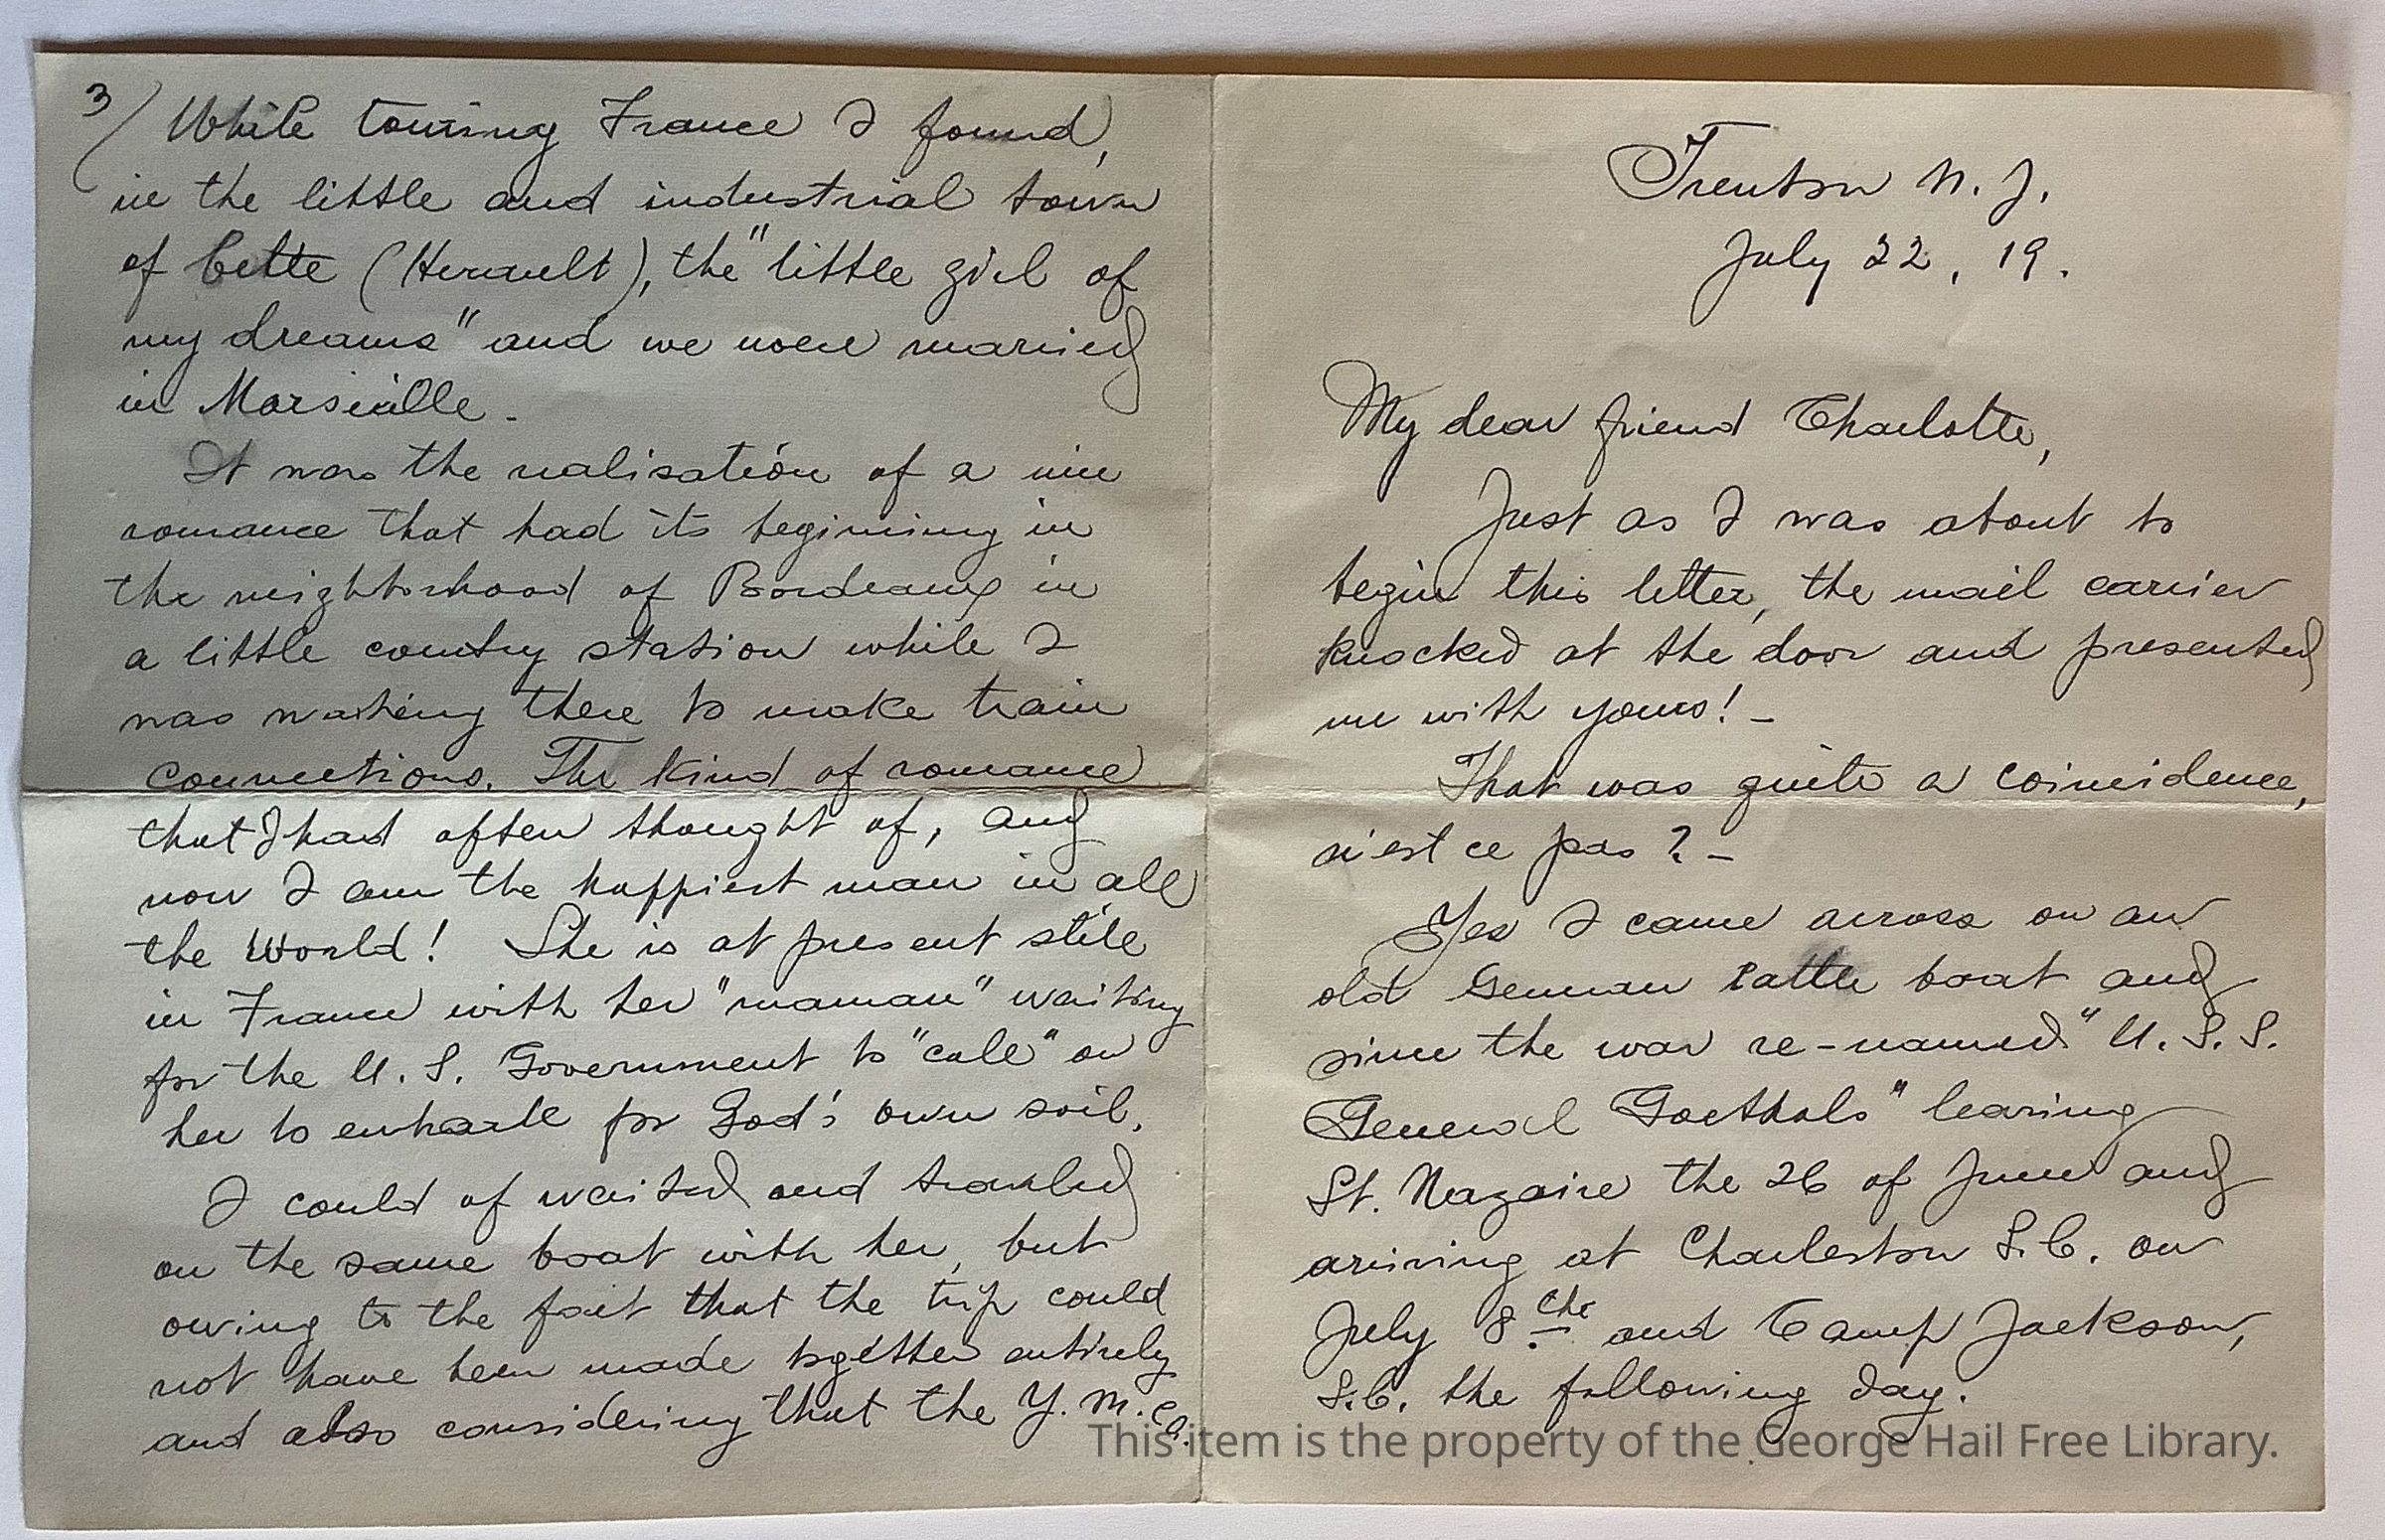 Trenton N. J.
July 22, 19.
My dear friend Charlotte,
Just as I was about to
begin this letter, the mail carrier
knocked at the door and presented
me with yours! -
That was quite a coincidence,
n'est ce pas ? -
Yes I came across on an
old German cattle boat and
since the war re-named "U. S. S.
General Goethals" leaving
St. Nazaire the 26 of June and
arriving at Charleston S.C. on
July 8 the and Camp Jackson,
S.C. the following day.
3/ While touring France I found,
in the little and industrial town
of Cette (Herault), the "little girl of
my dreams" and we were married
in Marseille.
It was the realisation of a
romance that had its begining in
the neighborhood of Bordeaux in
a little country station while I
was waiting there to make train
connections. The kind of romance
that I had often thought of, and
now I am the happiest man in all
the World! She is at present still
in France with her "maman" waiting
for the U. S. Government to "call" on
her to embark for God's own soil.
I could of waited and traveled
on the same boat with her, but
owing to the fact that the trip could
not have been made together entirely
and also considering that the Y. M. C. A.
This item is the property of the George Hail Free Library.